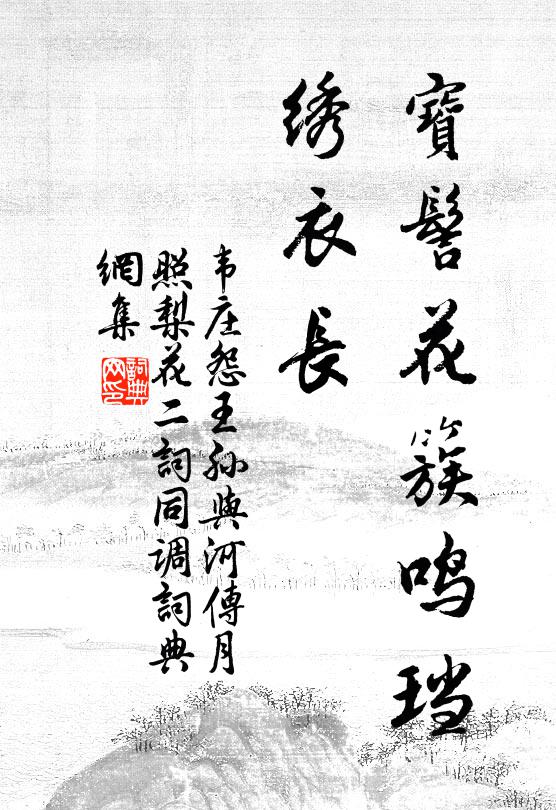 寶髻花簇鸣珰
绣衣長
韦庄怨王孙與河傳月
照梨花二詞同调詞典
網集
詞典
网印